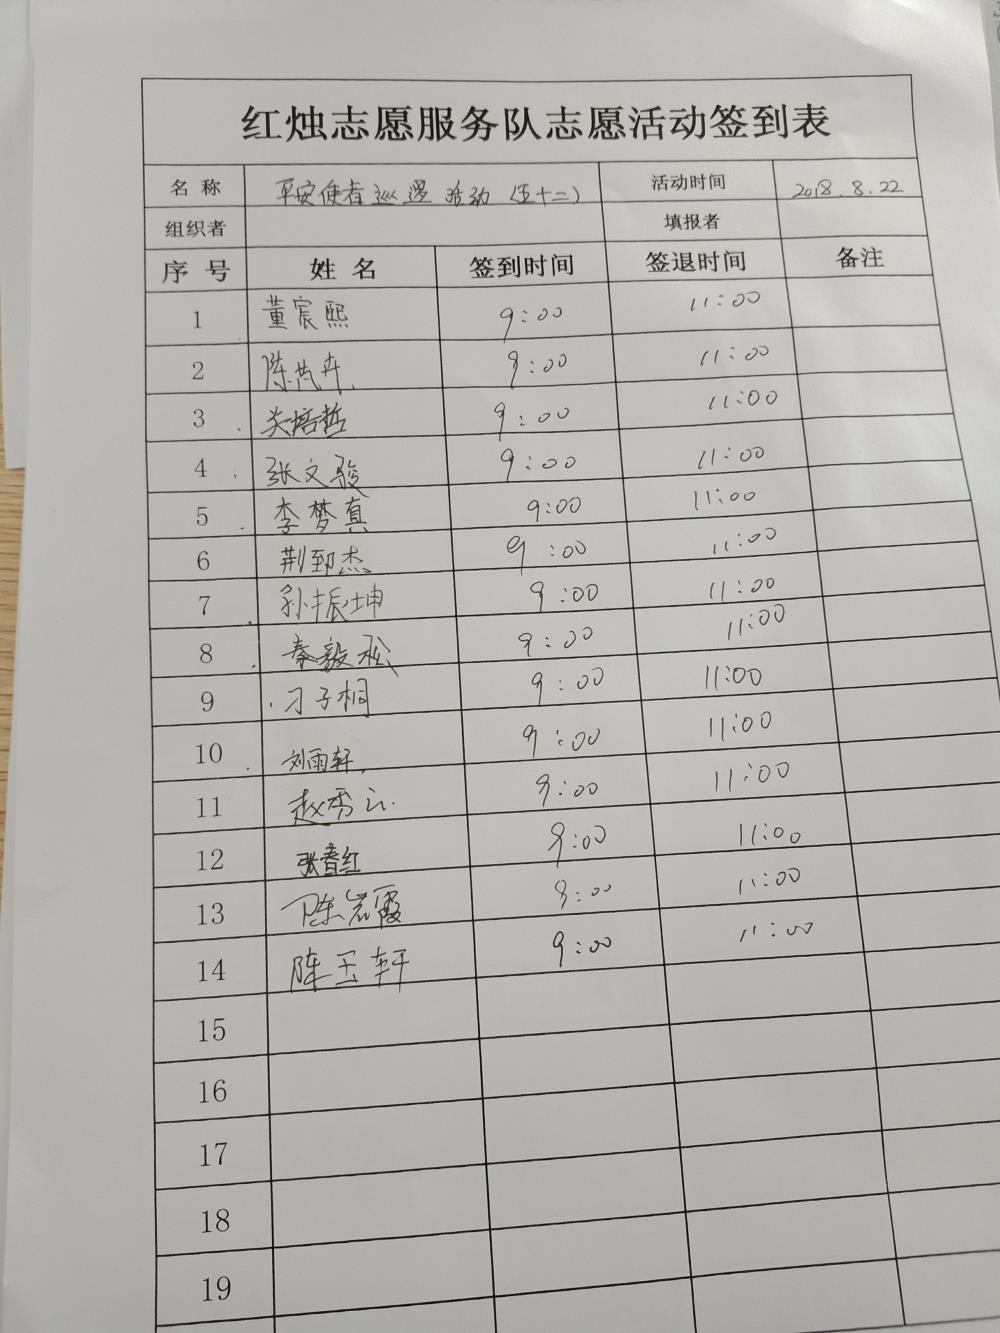 红烛志愿服务队志愿活动签到表
名 称 平安使者巡逻活动（五十二） 活动时间 2018.8.22
组织者 填报者
序 号 姓 名 签到时间 签退时间 备注
1 董宸熙 9:00 11:00
2 陈 9:00 11:00
3 关培哲 9:00 11:00
4 张文骏 9:00 11:00
5 李梦真 9:00 11:00
6 荆郅杰 9:00 11:00
7 孙振坤 9:00 11:00
8 秦毅松 9:00 11:00
9 刁子桐 9:00 11:00
10 刘雨轩 9:00 11:00
11 赵秀云 9:00 11:00
12 张春红 9:00 11:00
13 陈岩霞 9:00 11:00
14 陈玉轩 9:00 11:00
15
16
17
18
19